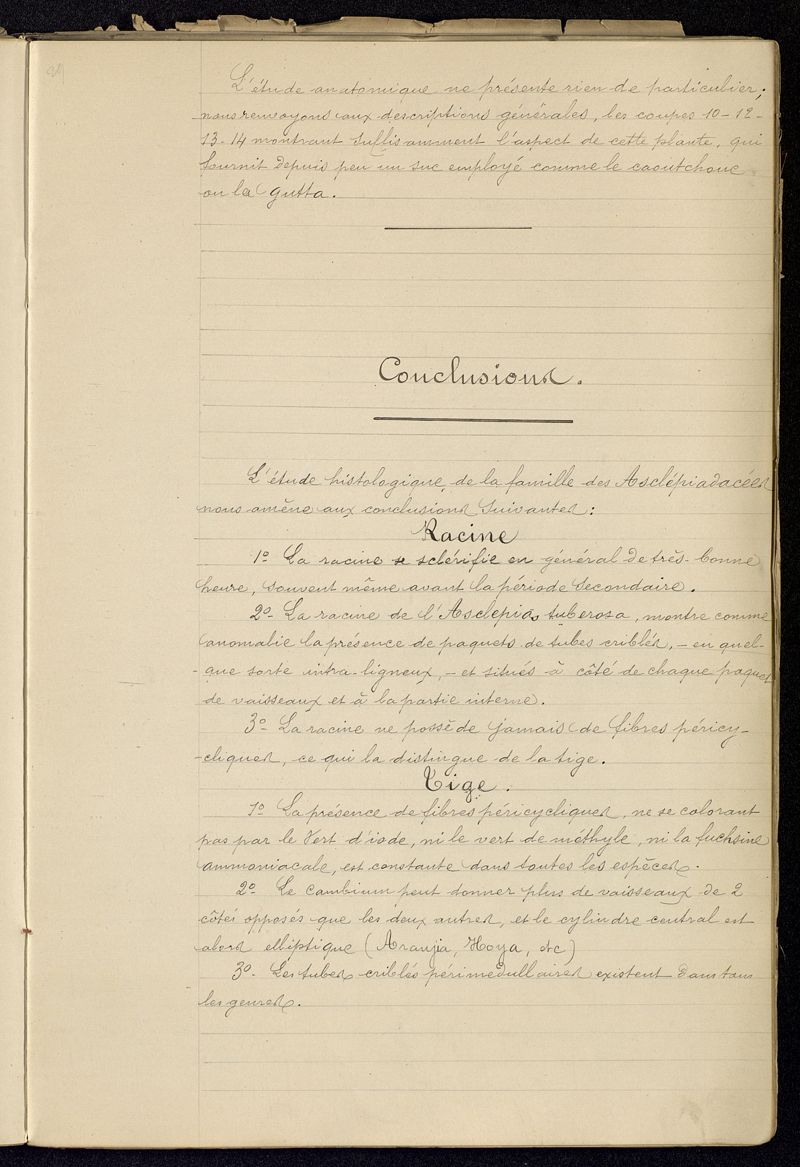 L'étude anatomique ne présente rien de particulier,
nous renvoyons aux descriptions générales, les coupes 10-12-
13-14 montrant suffisamment l'aspect de cette plante, qui
fournit depuis peu un suc employé comme le caoutchouc
ou la gutta.
Conclusions.
L'étude histologique de la famille des Asclépiadacées
nous amène aux conclusions suivantes :
Racine
1º La racine se sclérifie en général de très bonne
heure, souvent même avant la période secondaire.
2º- La racine de l'Asclepias tuberosa, montre comme
anomalie la présence de paquets de tubes criblés, - en quel-
-que sorte intra-ligneux, - et situés à côté de chaque paquet
de vaisseaux et à la partie interne.
3º- La racine ne possède jamais de fibres péricy-
-cliques, ce qui la distingue de la tige.
Tige.
1º La présence de fibres péricycliques, ne se colorant
pas par le Vert d'iode, ni le vert de méthyle, ni la fuchsine
ammoniacale, est constante dans toutes les espèces.
2º Le cambium peut donner plus de vaisseaux de 2
côtés opposés que les deux autres, et le cylindre central est
alors elliptique (Araujia, Hoya, etc)
3º- Les tubes criblés périmédullaires existent dans tous
les genres.